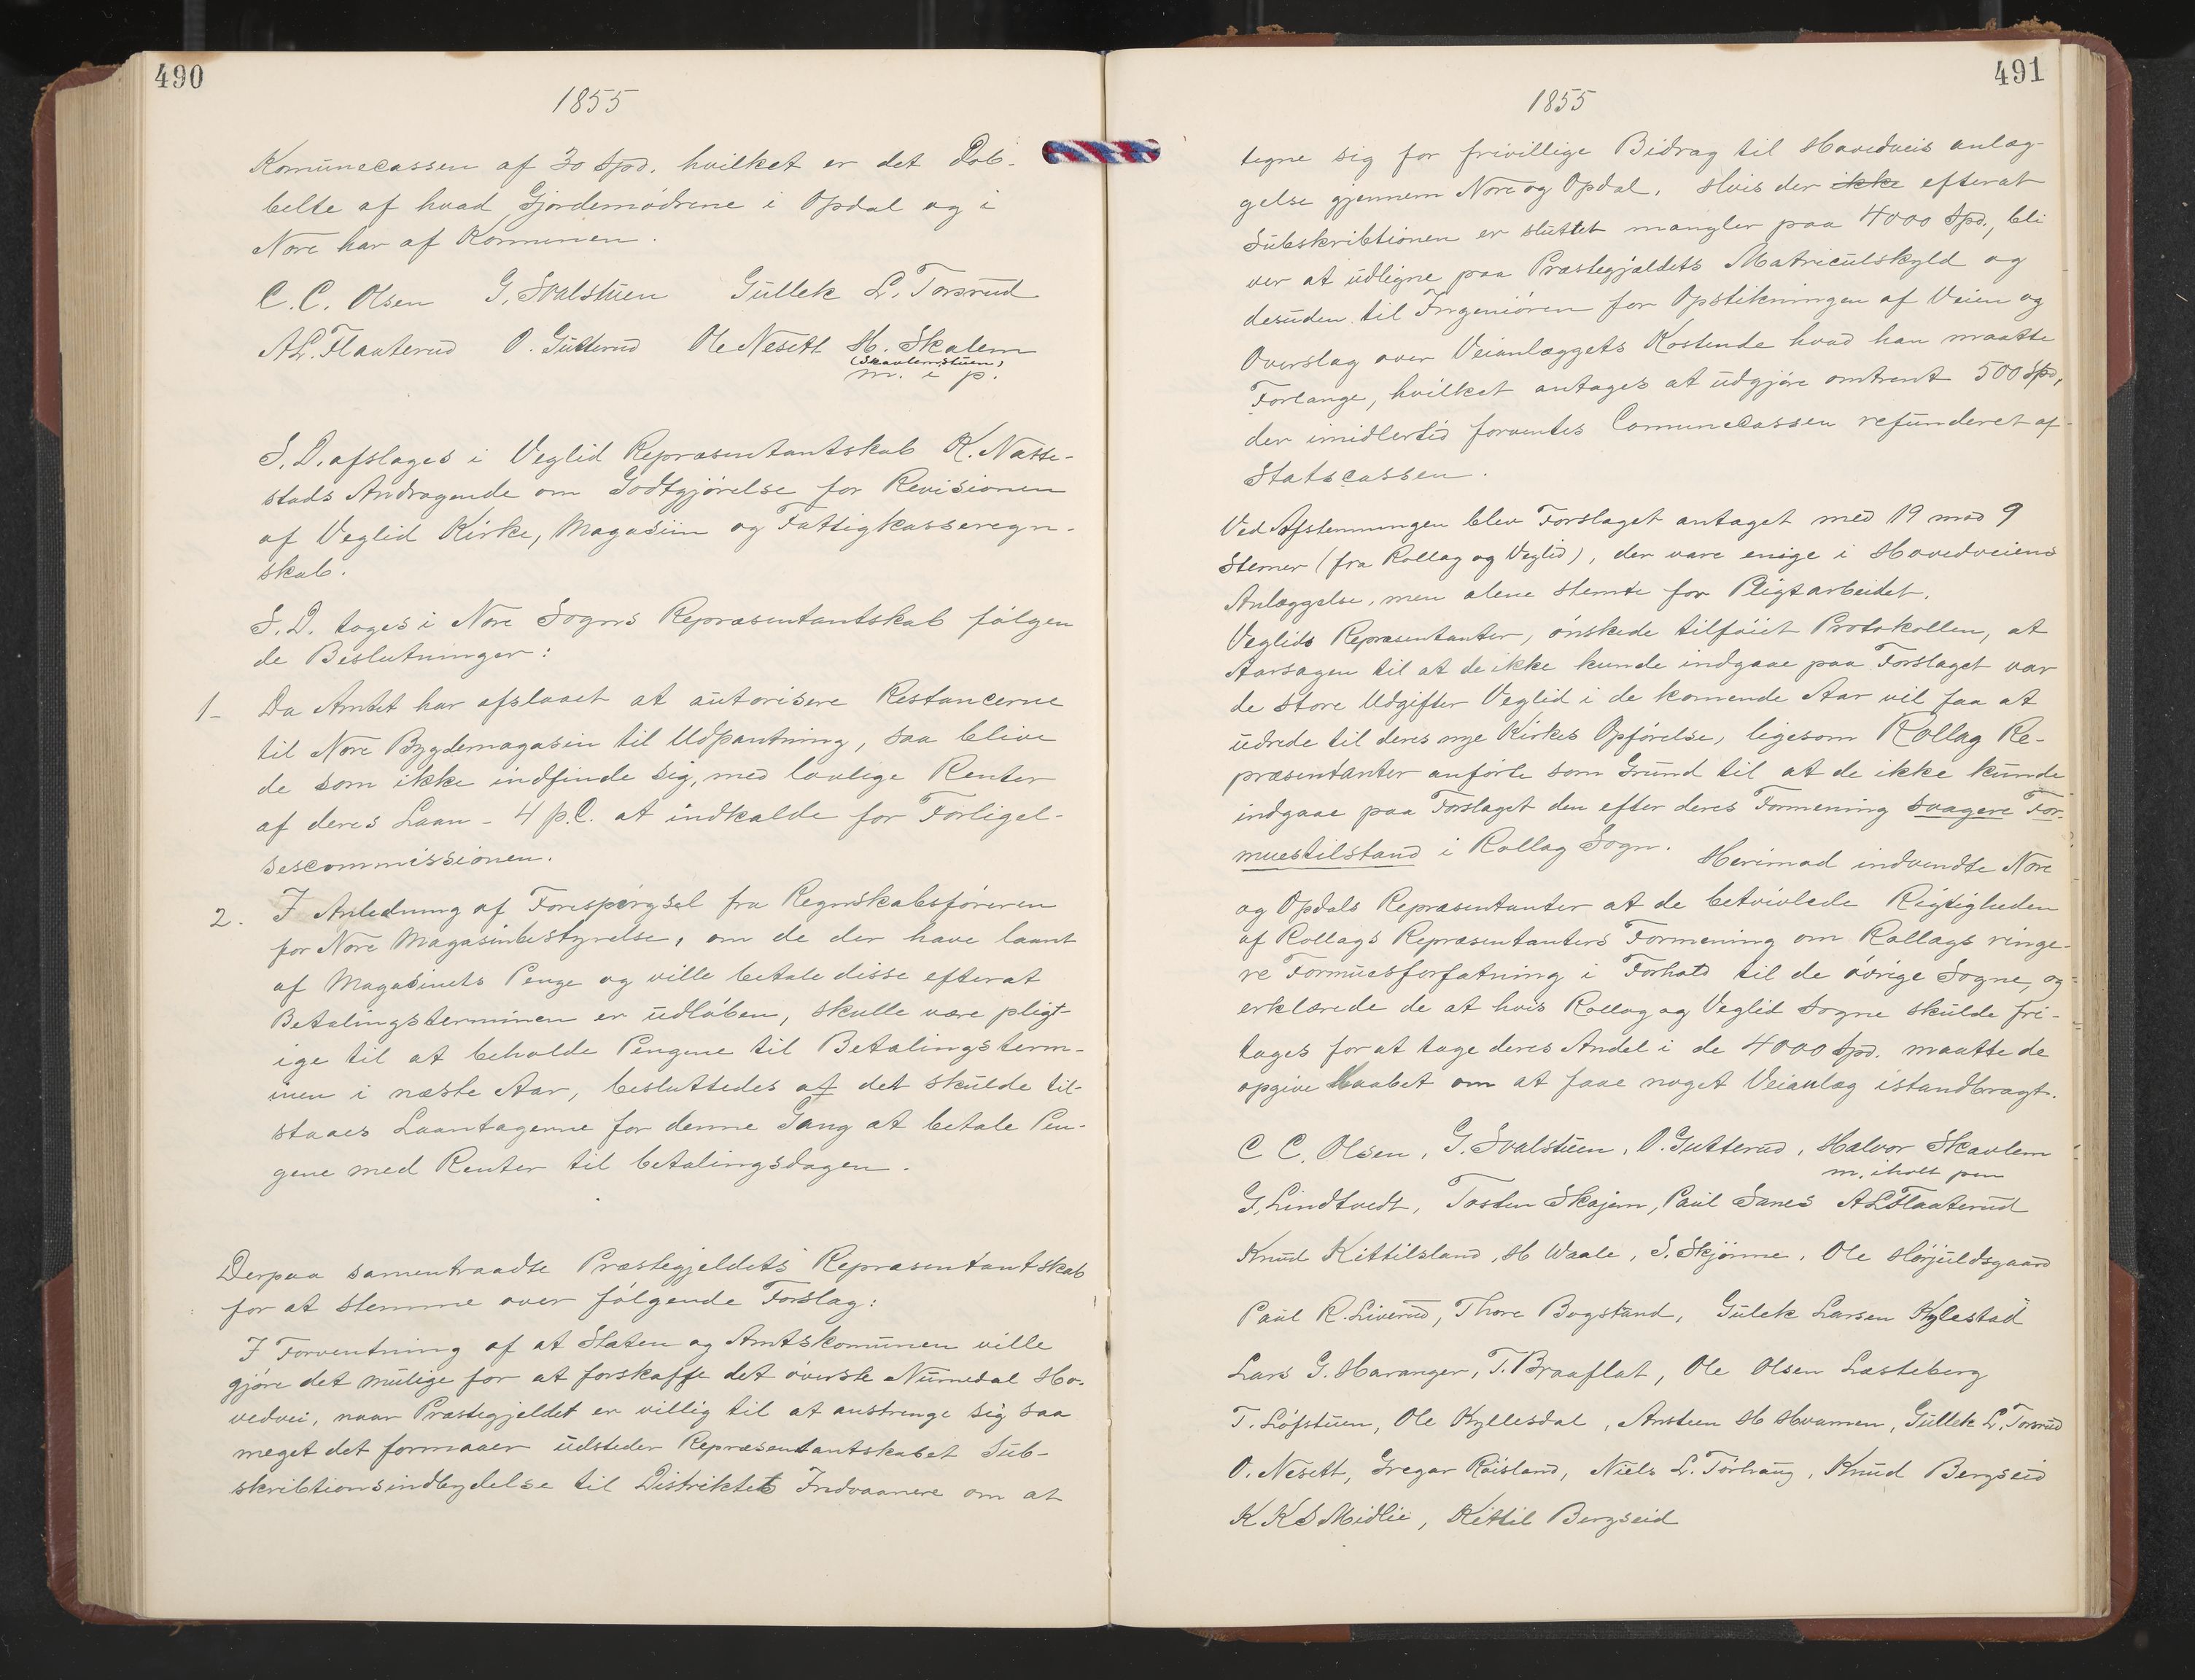 490
1855
Komunecassen af 30 Spd. hvilket er det Dob-
belte af hvad Gjordemødrene i Opdal og i
Nore har af Komunen.
C. C. Olsen G. Svalstuen Gullek L. Torsrud
A L. Flaaterud O. Gutterud Ole Nesett H. Skalem
(Skavlemstuen)
m. i p.
S. D. afslages i Veglid Repræsentantskab K. Natte-
stads Andragende om Godtgjørelse for Revisionen
af Veglid Kirke, Magasiin og Fattigkasseregn-
skab.
S. D. toges i Nore Sogns Repræsentantskab følgen
de Beslutninger:
1- Da Amtet har afslaaet at autorisere Restancerne
til Nore Bygdemagasin til Udpantning, saa blive
de som ikke indfinde sig, med lovlige Renter
af deres Laan - 4 p.C. at indkalde for Forligel-
sescommissionen.
2. I Anledning af Forespørgsel fra Regnskabsføreren
for Nore Magasinbestyrelse, om de der have laant
af Magasinets Penge og ville betale disse efterat
Betalingsterminen er udløben, skulle være pligt-
ige til at beholde Pengene til Betalingsterm-
inen i næste Aar, besluttedes at det skulde til-
staaes Laantagerne for denne Gang at betale Pen-
gene med Renter til betalingsdagen.
Derpaa samentraadte Præstegjeldets Repræsentantskab
for at stemme over følgende Forslag:
I Forventning af at Staten og Amtskomunen ville
gjøre det mulige for at forskaffe det øverste Numedal Ho-
vedvei, naar Præstegjeldet er villig til at anstrenge sig saa
meget det formaaer udsteder Repræsentantskabet Sub-
skribtionsindbydelse til Distriktets Indvaanere om at
491
1855
tegne sig for frivillige Bidrag til Hovedveis anlæg-
gelse gjennem Nore og Opdal. Hvis der ikke efterat
Subskribtionen er sluttet mangler paa 4000 Spd., bli
ver at udligne paa Præstegjældets Matriculskyld og
desuden til Ingeniøren for Opstikningen af Veien og
Overslag over Veianlæggets Kostende hvad han maatte
Forlange, hvilket antages at udgjøre omtrent 500 Spd,
der imidlertid forventes Comunecassen refunderet af
Statscassen.
Ved Afstemningen blev Forslaget antaget med 19 mod 9
Stemer (fra Rollag og Veglid), der vare enige i Hovedveiens
Anlæggelse, men alene stemte for Pligtarbeidet.
Veglids Repræsentanter, ønskede tilføiet Protokollen, at
Aarsagen til at de ikke kunde indgaae paa Forslaget var
de store Udgifter Veglid i de komende Aar vil faa at
udrede til deres nye Kirkes Opførelse, ligesom Rollag Re-
præsentanter anførte som Grund til at de ikke kunde
indgaae paa Forslaget den efter deres Formening svagere For-
muestilstand i Rollag Sogn. Herimod indvendte Nore
og Opdals Repræsentanter at de betvivlede Rigtigheden
af Rollags Repræsentanters Formening om Rollags ringe-
re Formuesforfatning i Forhold til de øvrige Sogne, og
erklærede de at hvis Rollag og Veglid Sogne skulde fri-
tages for at tage deres Andel i de 4000 Spd. maatte de
opgive Haabet om at faae noget Veianlæg istandbragt.
C C. Olsen, G. Svalstuen, O. Gutterud, Halvor Skavlem
m. iholt pen
G. Lindtvedt, Tosten Skajem, Paul Sanes A L Flaaterud
Knud Kittilsland, H Waale, S. Skjønne, Ole Hørjuldsgaard
Paul R. Liverud, Thore Bogstrand, Gulek Larsen Kylestad
Lars G. Haranger, T. Braaflat, Ole Olsen Lasteberg
T. Løfstuen, Ole Kyllesdal, Ansteen H Hvamen, Gullek L. Torsrud
O. Nesett, Gregar Røisland, Niels L. Tørhaug, Knud Bergseid
K K S Midlie, Kittil Bergseid